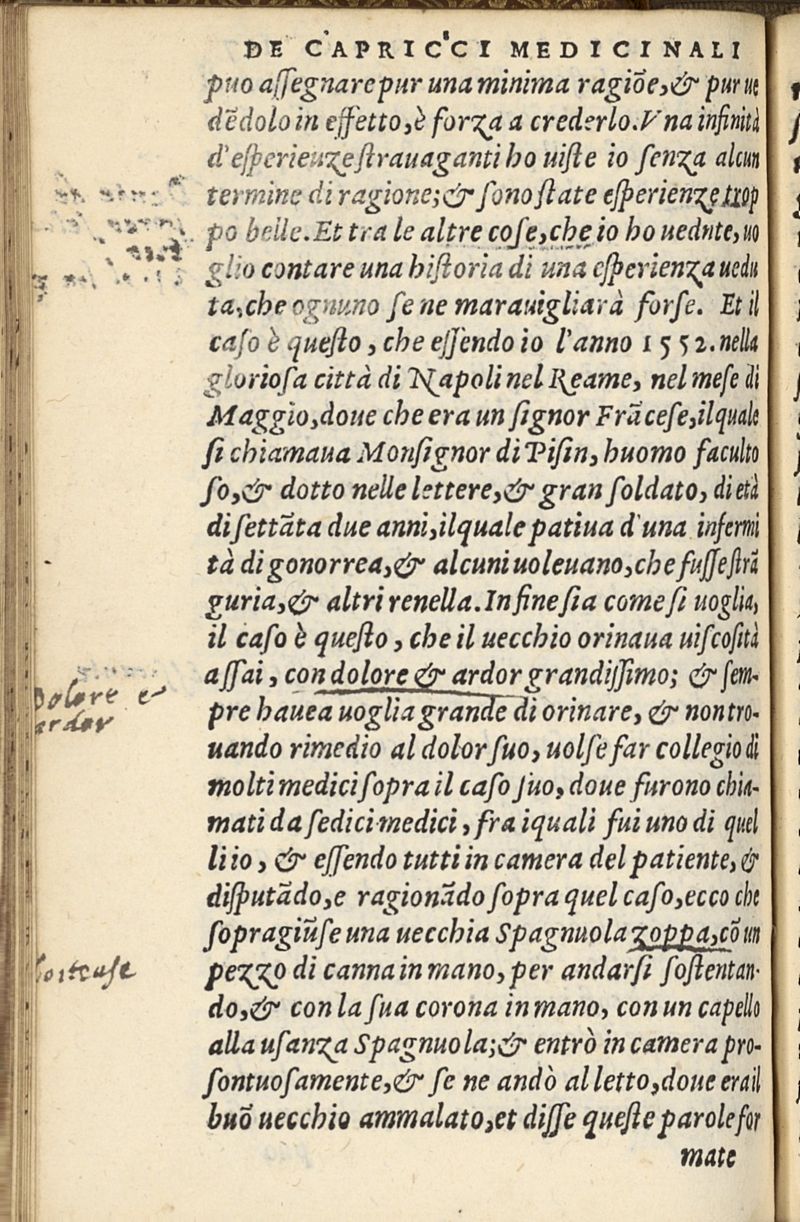 DE CAPRICCI MEDICINALI
puo aſſegnare pur una minima ragiõe,& pur ue
dẽdolo in effetto,è forza a crederlo.Vna infinità
d'eſperienze ſtrauaganti ho uiſte io ſenza alcun
termine di ragione;& ſono ſtate eſperienze trop
po belle.Et tra le altre coſe,che io ho uedute,uo
glio contare una hiſtoria di una eſperienza uedu
ta,che ognuno ſe ne marauigliarà forſe. Et il
caſo è queſto, che eſſendo io l'anno 1552.nella
glorioſa città di Napoli nel Reame, nel meſe di
Maggio,doue che era un ſignor Frãceſe,ilquale
ſi chiamaua Monſignor di Piſin, huomo faculto
ſo,& dotto nelle lettere,& gran ſoldato, di età
di ſettãta due anni,ilquale patiua d'una infermi
tà di gonorrea,& alcuni uoleuano,che fuſſe ſtrã
guria,& altri renella.In fine ſia come ſi uoglia,
il caſo è queſto, che il uecchio orinaua uiſcoſità
aſſai, con dolore & ardor grandiſſimo; & ſem-
pre hauea uoglia grande di orinare, & non tro-
uando rimedio al dolor ſuo, uolſe far collegio di
molti medici ſopra il caſo ſuo, doue furono chia-
mati da ſedici medici, fra iquali fui uno di quel
li io, & eſſendo tutti in camera del patiente, &
diſputãdo,e ragionãdo ſopra quel caſo,ecco che
ſopragiũſe una uecchia Spagnuola zoppa,cõ un
pezzo di canna in mano, per andarſi ſoſtentan-
do,& con la ſua corona in mano, con un capello
alla uſanza Spagnuola;& entrò in camera pro-
ſontuoſamente,& ſe ne andò al letto,doue era il
buõ uecchio ammalato,et diſſe queſte parole for
mate
Dolore e
ardor